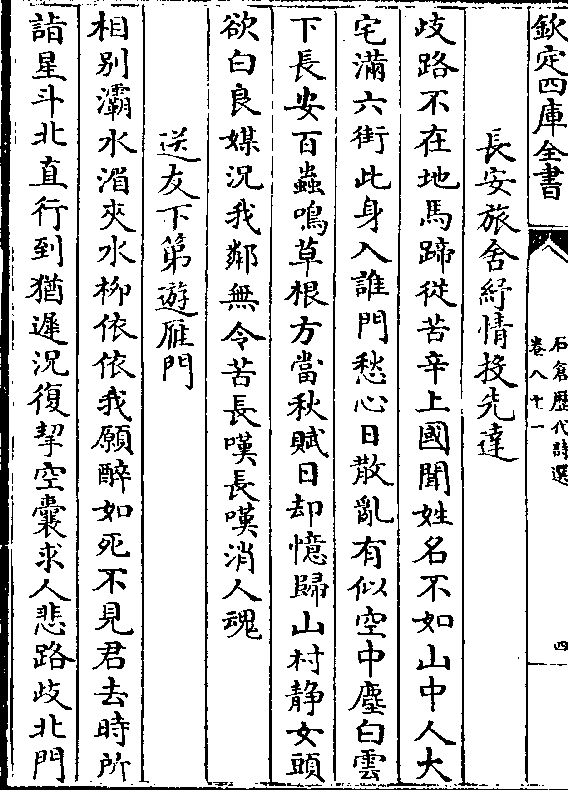 欽定四庫全書
石倉歷代詩選
卷八十一
四
長安旅舍紓情投先達
歧路不在地馬蹄從苦辛上國聞姓名不如山中人大
宅滿六街此身入誰門愁心日散亂有似空中塵白雲
下長安百蟲鳴草根方當秋賦日却憶歸山村静女頭
欲白良媒況我鄰無令苦長嘆長嘆消人魂
送友下第遊雁門
相别灞水湄夾水柳依依我願醉如死不見君去時所
詣星斗北直行到猶遲況復挈空囊求人悲路歧北門